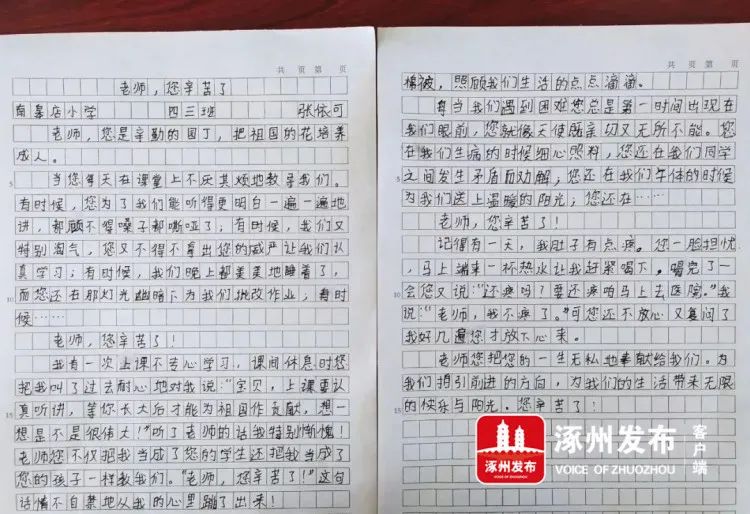 共 页 第 页
老师,您辛苦了
南皋店小学 四三班 张依可
老师,您是辛勤的园丁,把祖国的花培养
成人。
5
当您每天在课堂上不厌其烦地教导我们。
有时候,您为了我们能听得更明白一遍一遍地
讲,都顾不得嗓子都嘶哑了;有时候,我们又
特别淘气,您又不得不拿出您的威严让我们认
真学习;有时候,我们晚上都美美地睡着了,
10
而您还在那灯光幽暗下为我们批改作业;有时
候……
老师,您辛苦了!
我有一次上课不专心学习,课间休息时您
把我叫了过去耐心地对我说:“宝贝,上课要认
15
真听讲,等你长大后才能为祖国作贡献,想一
想是不是很伟大!”听了老师的话我特别惭愧!
老师您不仅把我当成了您的学生还把我当成了
您的孩子一样教我们。“老师,您辛苦了!”这句
话情不自禁地从我的心里蹦了出来!
共 页 第 页
棉被,照顾我们生活的点点滴滴。
每当我们遇到困难您总是第一时间出现在
我们眼前,您就像天使既亲切又无所不能。您
在我们生病的时候细心照料,您还在我们同学
5
之间发生矛盾而劝解,您还在我们午休的时候
为我们送上温暖的阳光;您还在……
老师,您辛苦了!
记得有一天,我肚子有点疼。您一脸担忧
,马上端来一杯热水让我赶紧喝下。喝完了一
10
会您又说:“还疼吗?要还疼咱马上去医院。”我
说:“老师,我不疼了。”可您还不放心又复问了
我好几遍您才放下心来。
老师您把您的一生无私地奉献给我们。为
我们指引前进的方向,为我们的生活带来无限
15
的快乐与阳光。您辛苦了!
涿州发布
VOICE OF ZHUOZHOU
客户端
涿州发布